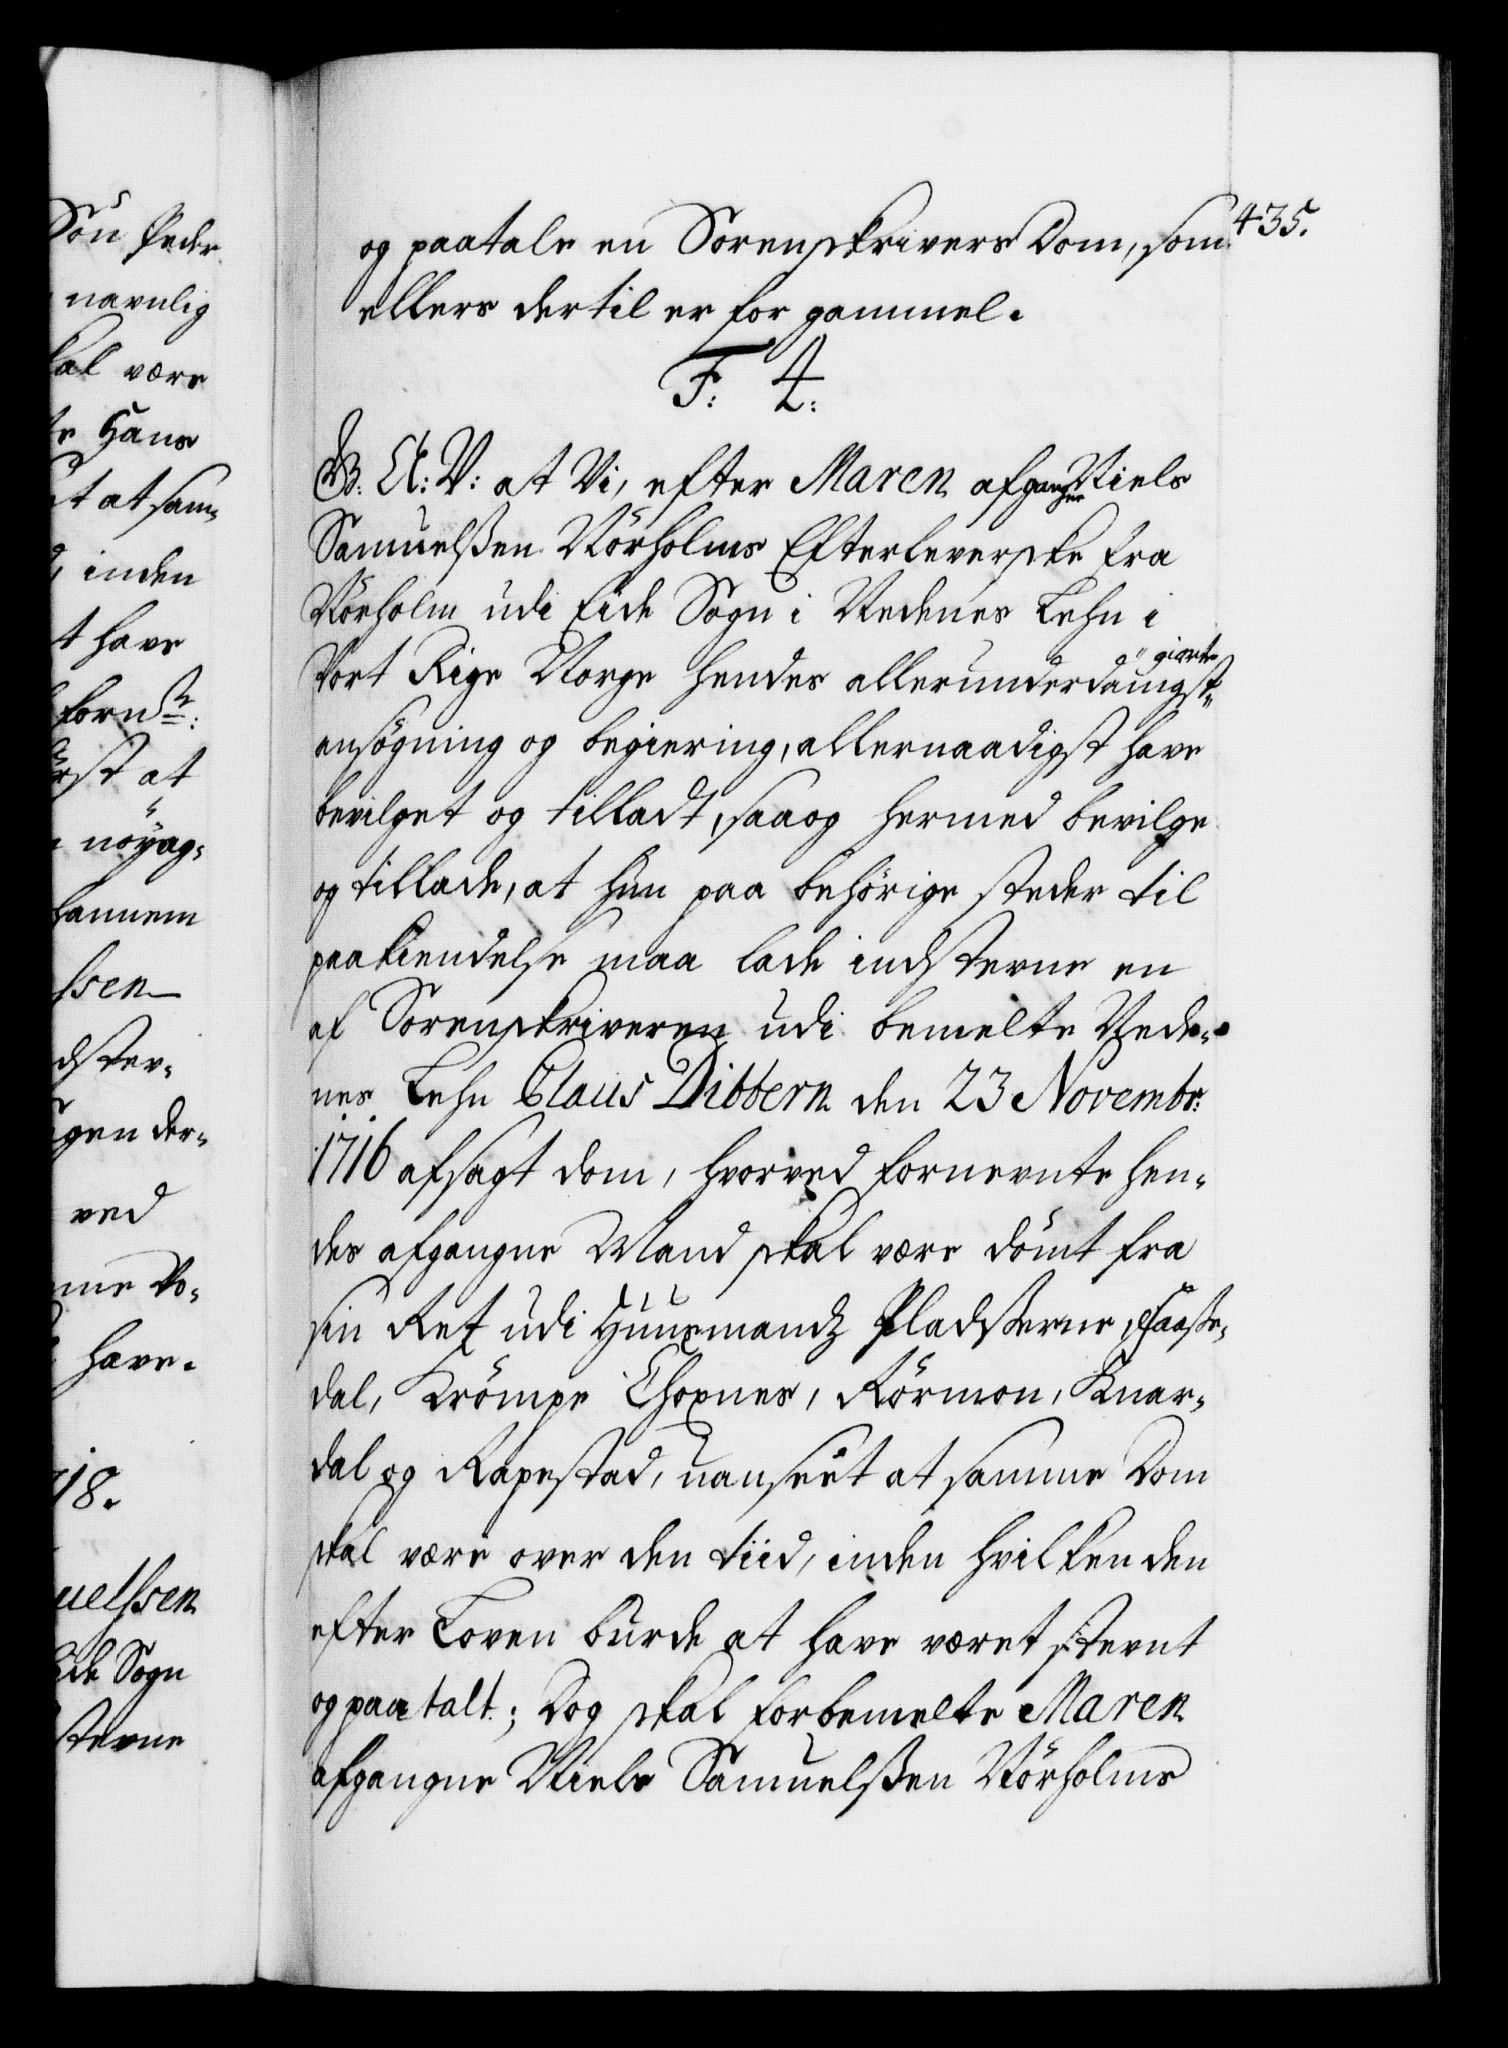 Sön Peder
navnlig
kal være
te Hans
at sam„
inden
t have
forn:
rst at
nöyag„
hannem
ssen
dstev„
gen der„
ved
me Do„
have.
718.
uelssen
Eide Sogn
stevne
435.
og paatale en Sorenskrivers Dom, som
ellers dertil er for gammel.
F: 4:
G. A: V: at Vi, efter Maren afgangne Niels
Samuelssen Nörholms Efterleverske fra
Nörholm udi Eide Sogn i Nedenes Lehn i
Vort Rige Norge hendes allerunderdanigst„
giorte
ansögning og begiering, allernaadigst have
bevilget og tilladt, saa og hermed bevilge
og tillade, at hun paa behörige steder til
paakiendelse maa lade indstevne en
af Sorenskriveren udi bemelte Nede„
nes Lehn Claus Dibbern den 23 Novembr:
1716 afsagt dom, hvorved fornevnte hen„
des afgangne Mand skal være dömt fra
sin Ret udi Huusmands Pladserne, Faasse„
dal, Krömpe Thoxnes, Rörmon, Knar„
dal og Rapestad, uanseet at samme Dom
skal være over den tiid, inden hvilken den
efter Loven burde at have været stevnt
og paatalt; Dog skal forbemelte Maren
afgangne Niels Samuelssen Nörholms